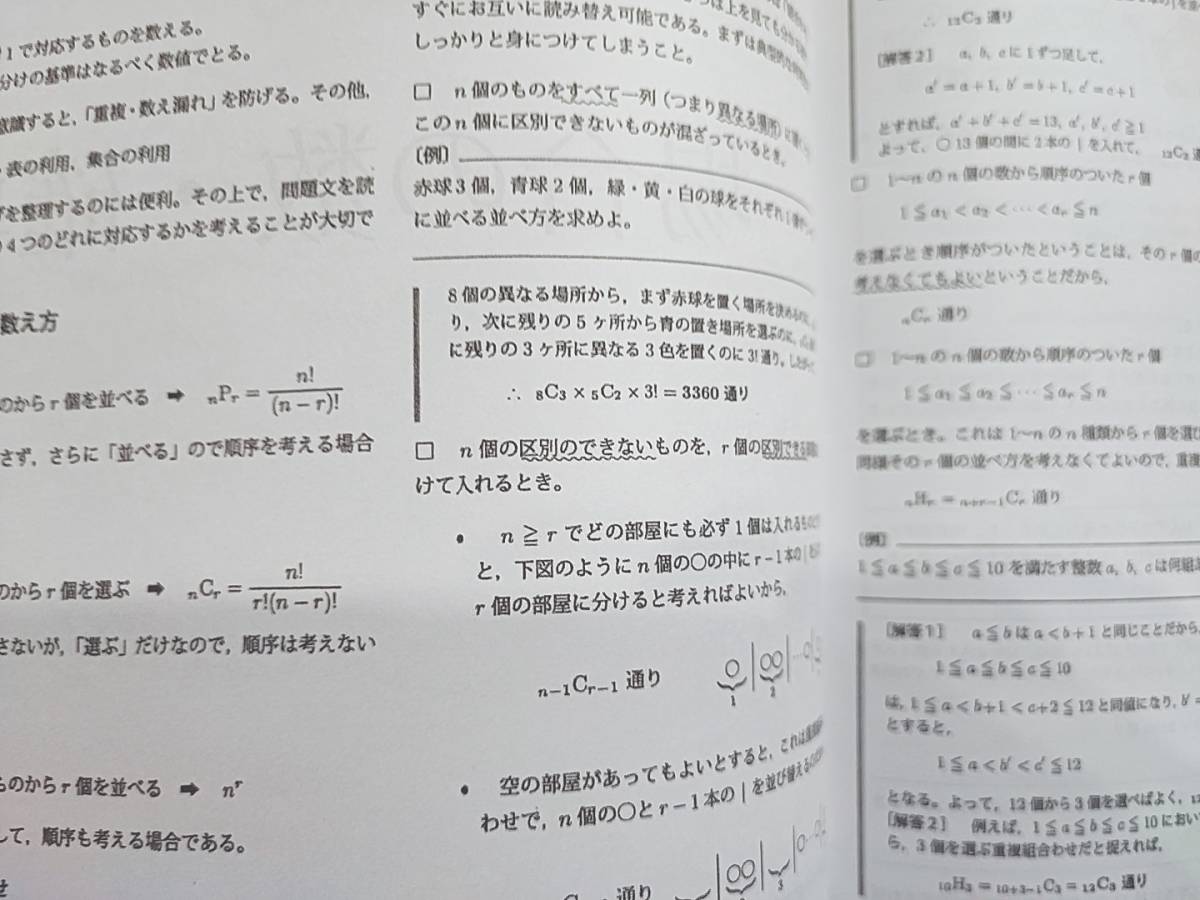 1で対応するものを数える。
分けの基準はなるべく数値でとる。
意識すると、「重複・数え漏れ」を防げる。その他，
表の利用，集合の利用
を整理するのには便利。その上で，問題文を読
4つのどれに対応するかを考えることが大切で
数え方
のからr個を並べる ➡ nPr = n!/(n−r)!
さず，さらに「並べる」ので順序を考える場合
のからr個を選ぶ ➡ nCr = n!/r!(n−r)!
さないが，「選ぶ」だけなので，順序は考えない
ものからr個を並べる ➡ n^r
して，順序も考える場合である。
せ
すぐにお互いに読み替え可能である。まずは典型的な
しっかりと身につけてしまうこと。
□ n個のものをすべて一列（つまり異なる場所）に
このn個に区別できないものが混ざっているとき。
〔例〕
赤球3個，青球2個，緑・黄・白の球をそれぞれ1
に並べる並べ方を求めよ。
8個の異なる場所から，まず赤球を置く場所を決める
り，次に残りの5ヶ所から青の置き場所を選ぶのに，
に残りの3ヶ所に異なる3色を置くのに3!通り。
∴ 8C3 × 5C2 × 3! = 3360 通り
□ n個の区別のできないものを，r個の区別できる
けて入れるとき。
• n ≧ r でどの部屋にも必ず1個は入れるもの
と，下図のようにn個の○の中にr−1本の|
r個の部屋に分けると考えればよいから，
n−1Cr−1 通り ○|○○|…○
1 2
• 空の部屋があってもよいとすると，これは
わせで，n個の○とr−1本の|を並び替える
通り |○○| |○…○
3
∴ 12C2 通り
［解答2］ a, b, cに1ずつ足して，
a′=a+1, b′=b+1, c′=c+1
とすれば，a′+b′+c′=13, a′, b′, c′≧1
よって，○13個の間に2本の|を入れて， 12C2 通
□ 1〜nのn個の数から順序のついたr個
1≦a1<a2<…<ar≦n
を選ぶとき順序がついたということは，そのr個の
考えなくてもよいということだから，
nCr 通り
□ 1〜nのn個の数から順序のついたr個
1≦a1≦a2≦…≦ar≦n
を選ぶとき。これは1〜nのn種類からr個を選び
同様そのr個の並べ方を考えなくてよいので，重複
nHr = n+r−1Cr 通り
〔例〕
1≦a≦b≦c≦10を満たす整数a, b, cは何組
［解答1］ a≦bはa<b+1と同じことだから，
1≦a≦b≦c≦10
は，1≦a<b+1<c+2≦12と同値になり，b′=
とすると，
1≦a<b′<c′≦12
となる。よって，12個から3個を選べばよく，12
［解答2］ 例えば，1≦a≦b≦c≦10において
ら，3個を選ぶ重複組合わせだと捉えれば，
10H3 = 10+3−1C3 = 12C3 通り